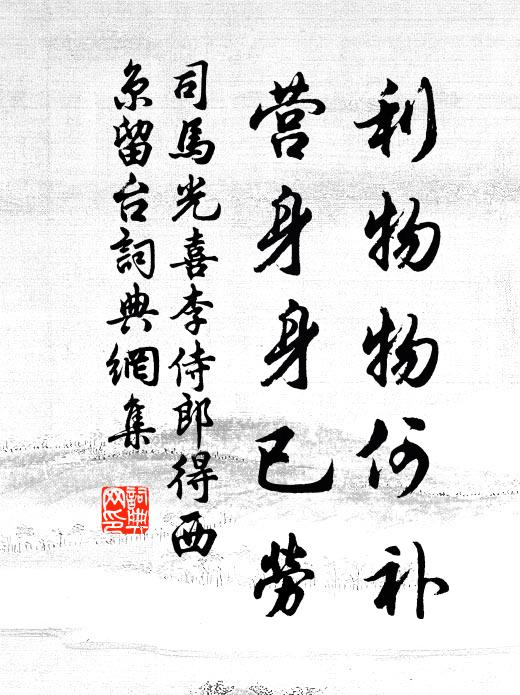 利物物何补
营身身已劳
司馬光喜李侍郎得西
京留台詞典網集
詞典网印